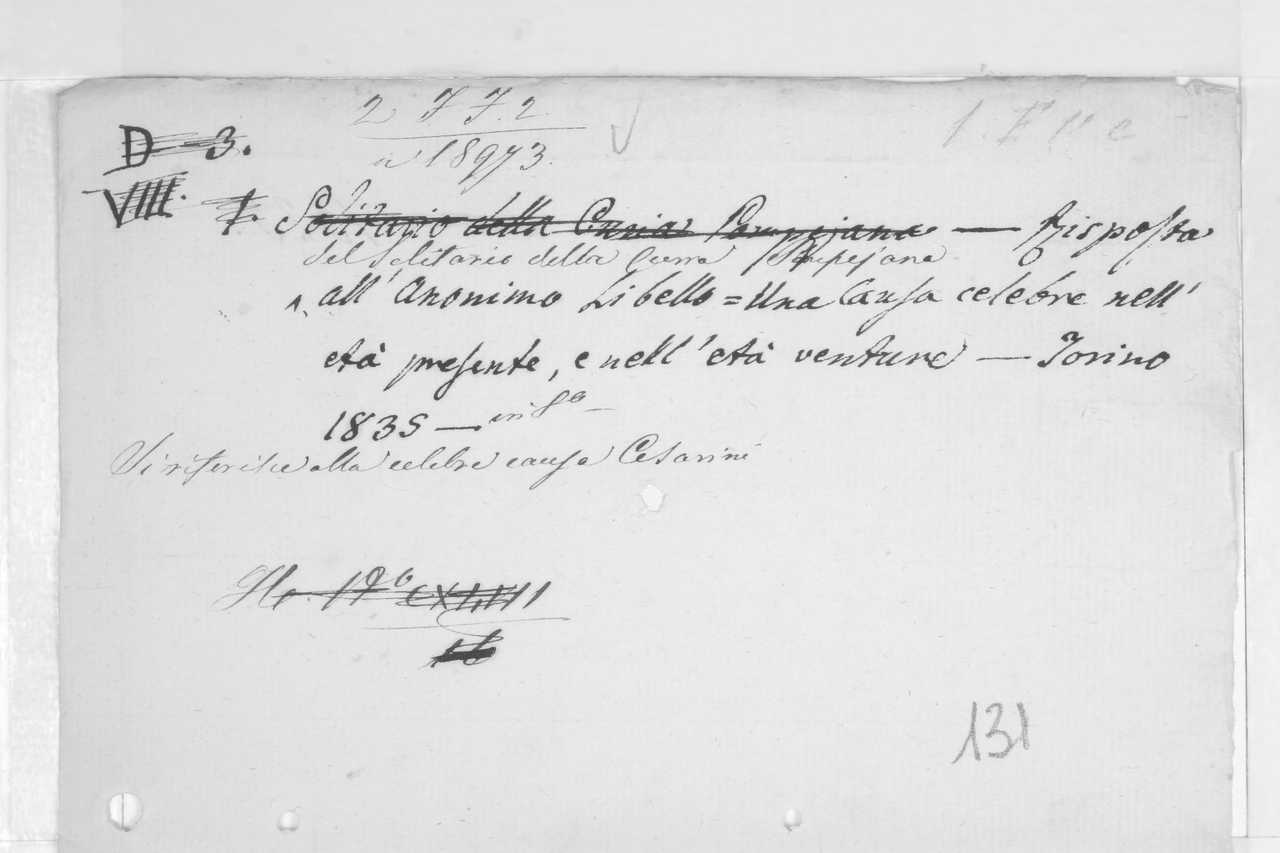 2 F F. 2
a 18973.
D - 3.
VIIII. I. Solitario della Curia Pompejana — Risposta
del Solitario della Curia Pompejana
all' Anonimo Libello = Una Causa celebre nell'
età presente, e nell' età venture — Torino
1835 — in 8o
Si riferisce alla celebre causa Cesarini
131